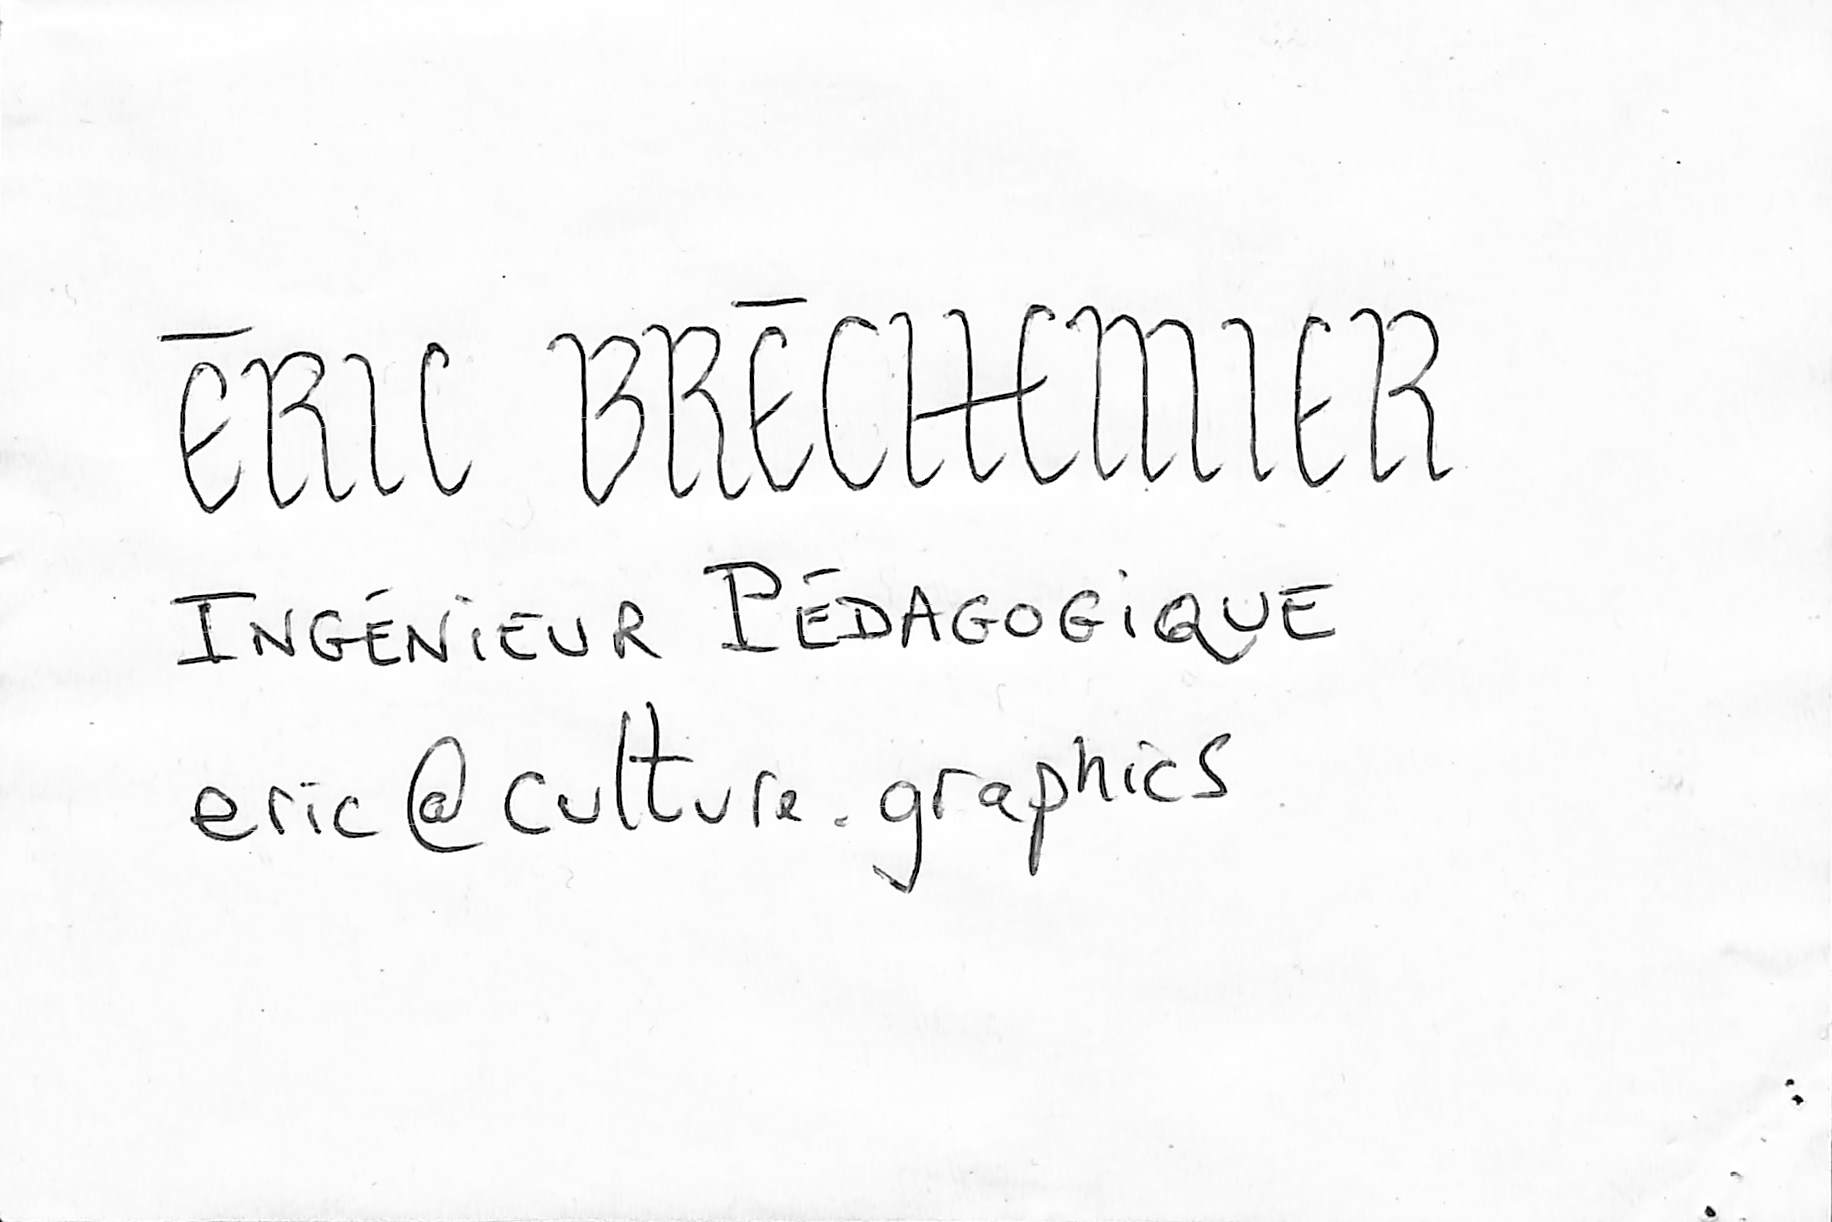 ÉRIC BRÉCHEMIER
INGÉNIEUR PÉDAGOGIQUE
eric@culture.graphics